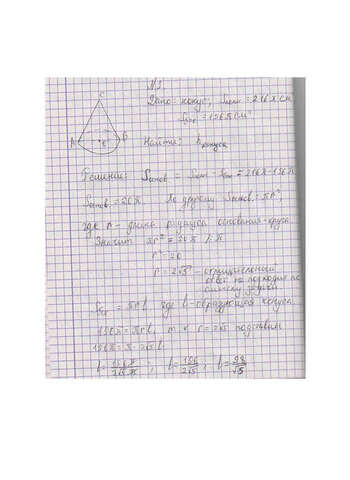 N3
C
Дано: конус, Sполн = 216π см²
Sбок = 196π см²
A B
Найти: hконуса
Решение: Sоснов = Sполн - Sбок = 216π-196π
Sоснов. = 20π. По другому Sоснов. = πr²,
где r - длина радиуса основания-круга
Значит πr² = 20π /:π
r² = 20
r = 2√5 - отрицательный
ответ не подходит по
смыслу задачи
Sбок = πrl, где l - образующая конуса.
196π = πrl, т к r = 2√5 подставим
196π = π · 2√5 l
l = 196π/2√5π ; l = 196/2√5 ; l = 98/√5